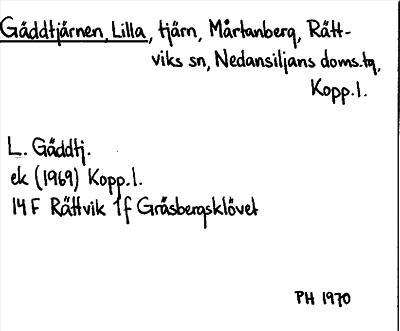 Gäddtjärnen, Lilla, tjärn, Mårtanberg, Rätt-
viks sn, Nedansiljans doms.tg,
Kopp.l.
L. Gäddtj.
ek (1969) Kopp.l.
14 F Rättvik 1f Gräsbergsklövet
PH 1970